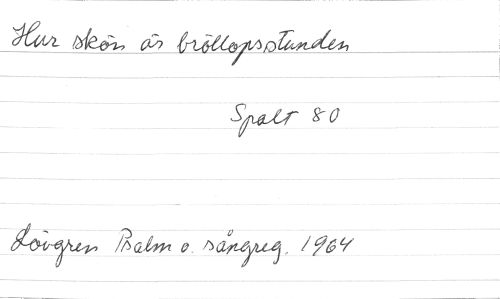 Hur skön är bröllopsstunden
Spalt 80
Lövgren Psalm o. sångreg. 1964